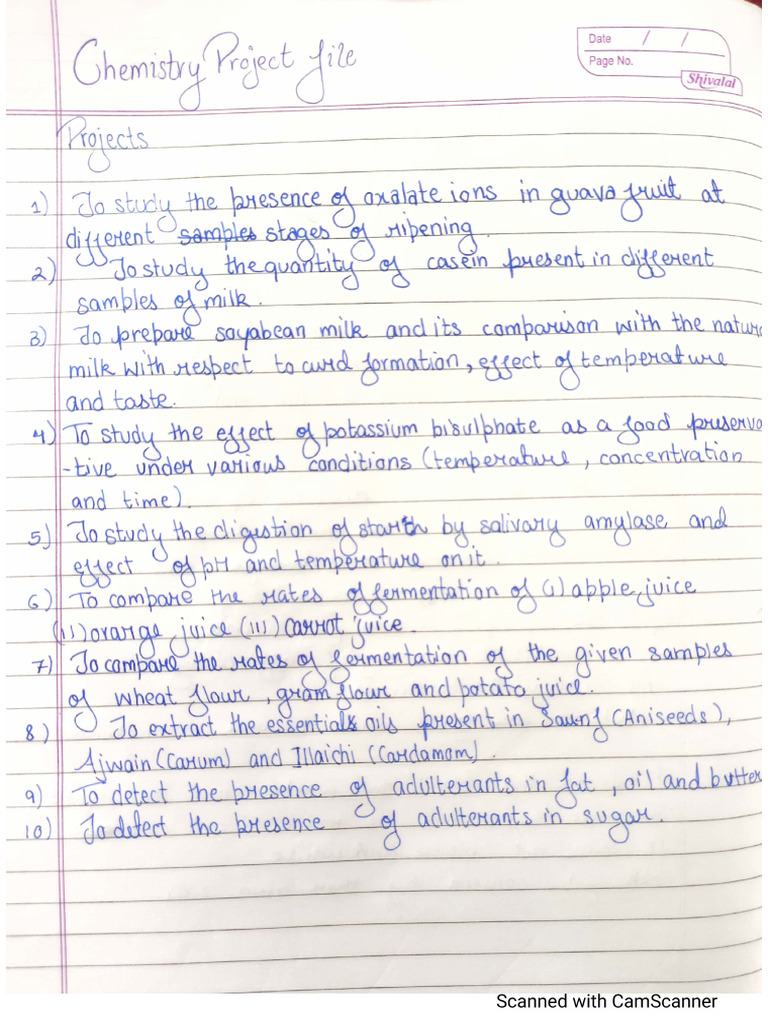 Chemistry Project file
Date / /
Page No.
Shivalal
Projects
1) To study the presence of oxalate ions in guava fruit at
different samples stages of ripening.
2) To study the quantity of casein present in different
samples of milk.
3) To prepare soyabean milk and its comparison with the natura
milk with respect to curd formation, effect of temperature
and taste.
4) To study the effect of potassium bisulphate as a food preserva
-tive under various conditions (temperature, concentration
and time).
5) To study the digestion of starch by salivary amylase and
effect of pH and temperature on it.
6) To compare the rates of fermentation of (i) apple juice
(ii) orange juice (iii) carrot juice.
7) To compare the rates of fermentation of the given samples
of wheat flour, gram flour and potato juice.
8) To extract the essentials oils present in Saunf (Aniseeds),
Ajwain (Carum) and Illaichi (Cardamom).
9) To detect the presence of adulterants in fat, oil and butter
10) To detect the presence of adulterants in sugar.
Scanned with CamScanner